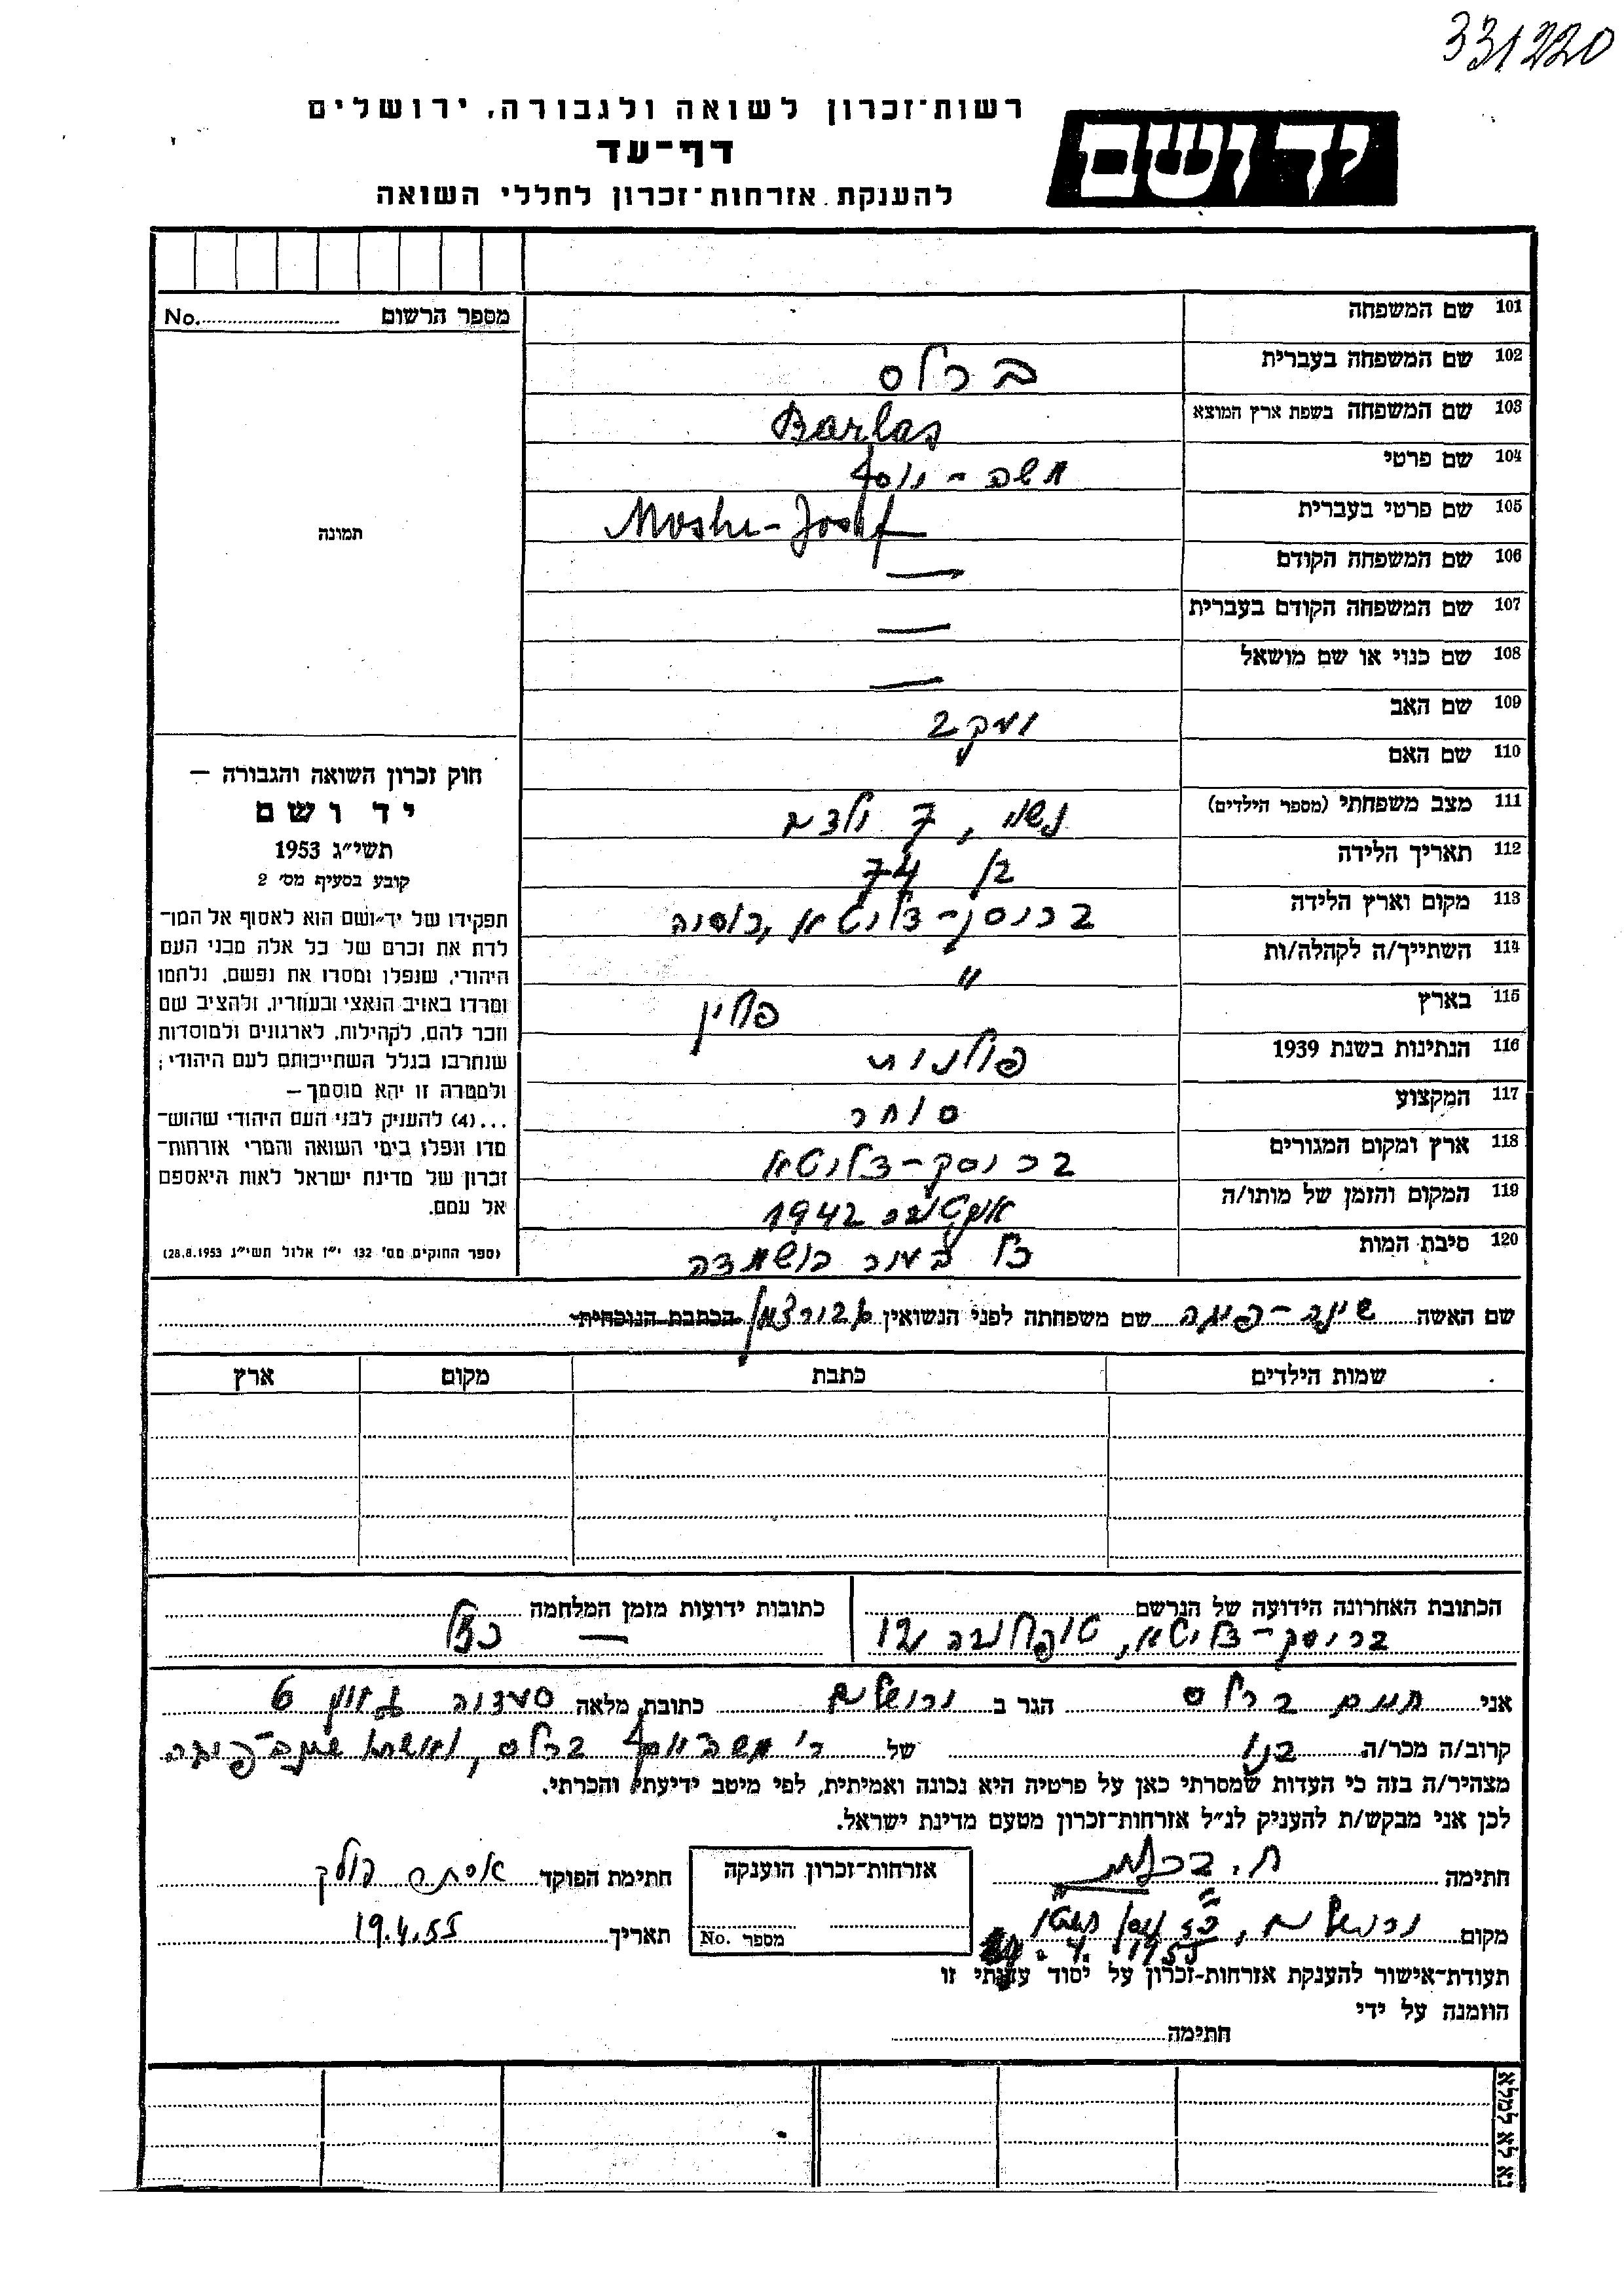 331220
רשות־זכרון לשואה ולגבורה, ירושלים
יד ושם
דף־עד
להענקת אזרחות־זכרון לחללי השואה
101 שם המשפחה
מספר הרשום No.
102 שם המשפחה בעברית ברלס
103 שם המשפחה בשפת ארץ המוצא Barlas
104 שם פרטי משה - יוסף
105 שם פרטי בעברית Moshe-Josef
106 שם המשפחה הקודם —
107 שם המשפחה הקודם בעברית —
108 שם כנוי או שם מושאל —
109 שם האב יעקב
110 שם האם
111 מצב משפחתי (מספר הילדים) נשוי, 7 ילדים
112 תאריך הלידה בן 74
113 מקום וארץ הלידה בריסק-דליטא, רוסיה
114 השתייך/ה לקהלה/ות "
115 בארץ פולין
116 הנתינות בשנת 1939 פולנית
117 המקצוע סוחר
118 ארץ ומקום המגורים בריסק-דליטא
119 המקום והזמן של מותו/ה אוקטובר 1942
120 סיבת המות
תמונה
חוק זכרון השואה והגבורה —
יד ושם
תשי״ג 1953
קובע בסעיף מס׳ 2
תפקידו של יד־ושם הוא לאסוף אל המו־
לדת את זכרם של כל אלה מבני העם
היהודי, שנפלו ומסרו את נפשם, נלחמו
ומרדו באויב הנאצי ובעוזריו, ולהציב שם
וזכר להם, לקהילות, לארגונים ולמוסדות
שנחרבו בגלל השתייכותם לעם היהודי;
ולמטרה זו יהא מוסמך—
...(4) להעניק לבני העם היהודי שהוש־
מדו ונפלו בימי השואה והמרי אזרחות־
זכרון של מדינת ישראל לאות היאספם
אל עמם.
(ספר החוקים מס׳ 132 י״ז אלול תשי״ג 28.8.1953)
שם האשה שינה-פיגה שם משפחתה לפני הנשואין הכתבת הנוכחית
שמות הילדים כתבת מקום ארץ
הכתובת האחרונה הידועה של הנרשם
בריסק-דליטא,
כתובות ידועות מזמן המלחמה כנ״ל
—
אני חיים ברלס הגר ב ירושלים כתובת מלאה סעדיה גאון 6
קרוב/ה מכר/ה בנו של ר׳ משה יוסף ברלס, ואשתו שינה-פיגה
מצהיר/ה בזה כי העדות שמסרתי כאן על פרטיה היא נכונה ואמיתית, לפי מיטב ידיעתי והכרתי.
לכן אני מבקש/ת להעניק לנ״ל אזרחות־זכרון מטעם מדינת ישראל.
חתימה ח. ברלס
אזרחות־זכרון הוענקה
מספר No.
חתימת הפוקד אסתר פולק
מקום ירושלים,
1955
תאריך 19.4.55
תעודת־אישור להענקת אזרחות־זכרון על יסוד עדותי זו
הוזמנה על ידי
חתימה
נא לא למלא